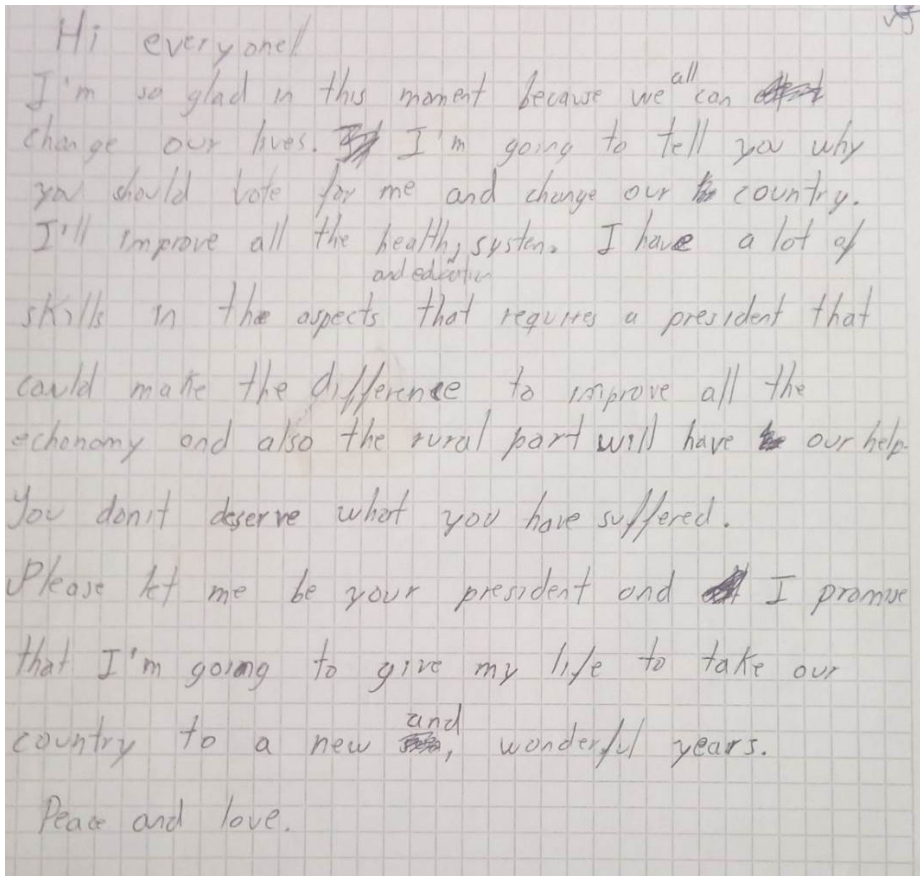 Hi everyone!
I'm so glad in this moment because we all can
change our lives. I'm going to tell you why
you should vote for me and change our country.
I'll improve all the health, system. I have a lot of
and education
skills in the aspects that requires a president that
could make the difference to improve all the
echonomy and also the rural part will have our help.
You don't deserve what you have suffered.
Please let me be your president and I promise
that I'm going to give my life to take our
country to a new and, wonderful years.
Peace and love.